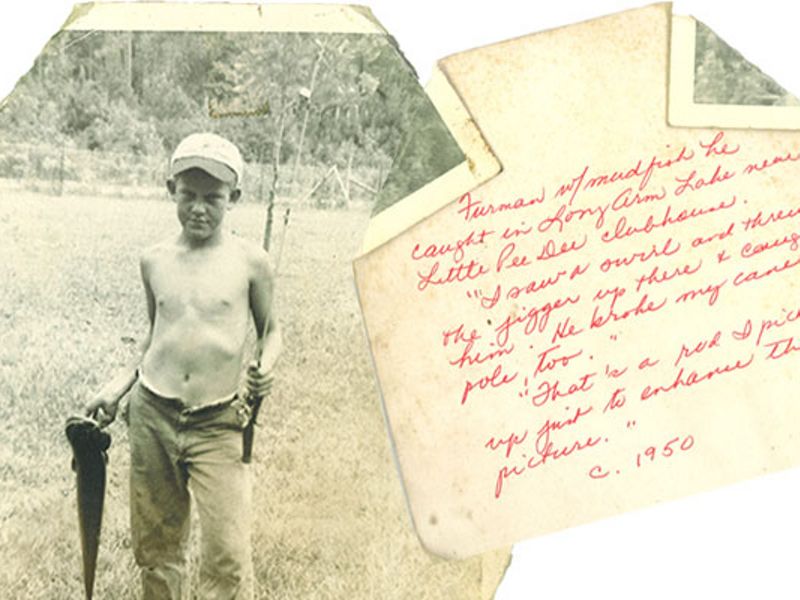 Furman w/ mudfish he
caught in Long Arm Lake near
Little Pee Dee clubhouse.
"I saw a swirl and threw
the jigger up there & caug
him. He broke my cane
pole, too."
"That's a rod I pic
up just to enhance th
picture."
c. 1950